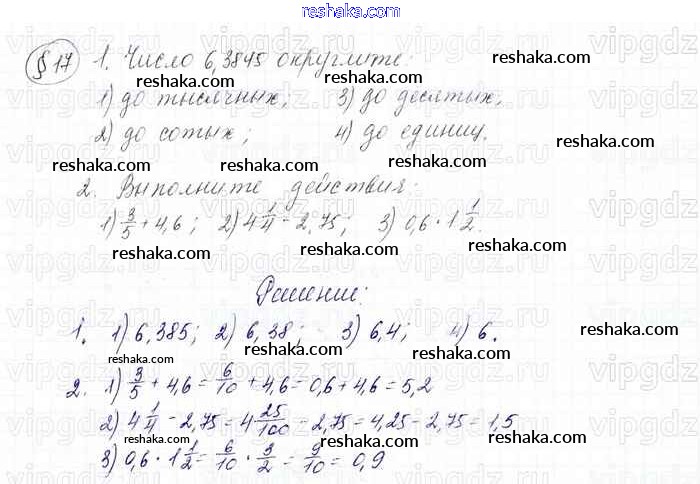 reshaka.com
§ 17 1. Число 6,3845 округлите:
reshaka.com reshaka.com reshaka.com
1) до тысячных; 3) до десятых;
2) до сотых; 4) до единиц.
reshaka.com reshaka.com reshaka.com
2. Выполните действия:
1) 3/5 + 4,6; 2) 4 1/4 - 2,75; 3) 0,6 · 1 1/2.
reshaka.com reshaka.com reshaka.com
Решение:
reshaka.com reshaka.com reshaka.com
1. 1) 6,385; 2) 6,38; 3) 6,4; 4) 6.
reshaka.com reshaka.com reshaka.com
2. 1) 3/5 + 4,6 = 6/10 + 4,6 = 0,6 + 4,6 = 5,2
2) 4 1/4 - 2,75 = 4 25/100 - 2,75 = 4,25 - 2,75 = 1,5
reshaka.com reshaka.com reshaka.com
3) 0,6 · 1 1/2 = 6/10 · 3/2 = 9/10 = 0,9
reshaka.com